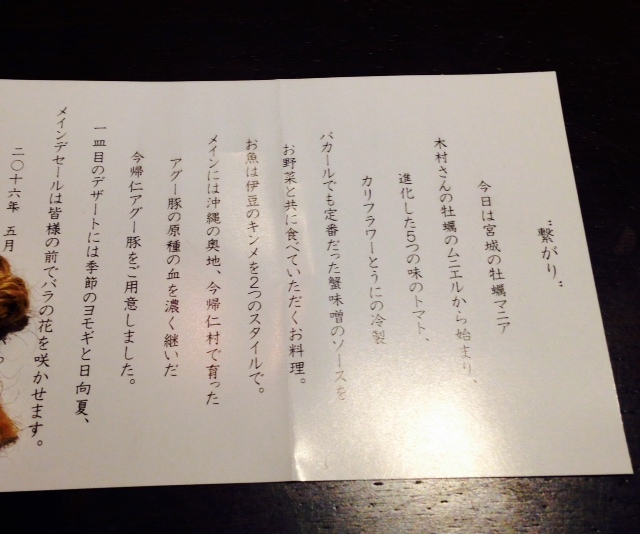 "繋がり"
今日は宮城の牡蠣マニア
木村さんの牡蠣のムニエルから始まり、
進化した5つの味のトマト、
カリフラワーとうにの冷製
バカールでも定番だった蟹味噌のソースを
お野菜と共に食べていただくお料理。
お魚は伊豆のキンメを2つのスタイルで。
メインには沖縄の奥地、今帰仁村で育った
アグー豚の原種の血を濃く継いだ
今帰仁アグー豚をご用意しました。
一皿目のデザートには季節のヨモギと日向夏、
メインデセールは皆様の前でバラの花を咲かせます。
二〇十六年 五月